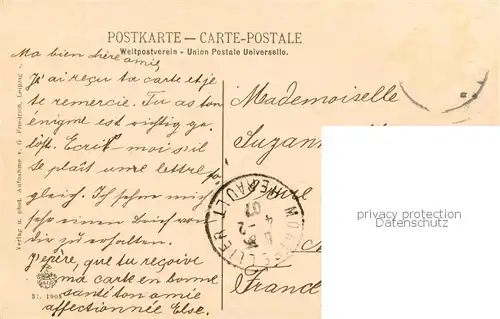 POSTKARTE — CARTE-POSTALE
Weltpostverein - Union Postale Universelle.
Ma bien chère amie,
J'ai reçu ta carte et je
te remercie. Tu as ton
enigmt est richtig ge-
löst. Ecris-moi s'il
te plaît une lettre so-
gleich. Ich sehne mich
sehr einen Brief von
dir zu erhalten.
J'epère, que tu reçoive
ma carte en bonne
santé ton amie
affectionnée Else.
Mademoiselle
Suzanne
France
MONTPELLIER
HERAULT
4 -2
07
Verlag u. phot. Aufnahme v. G. Friedrich, Leipzig
31. 1905
privacy protection
Datenschutz